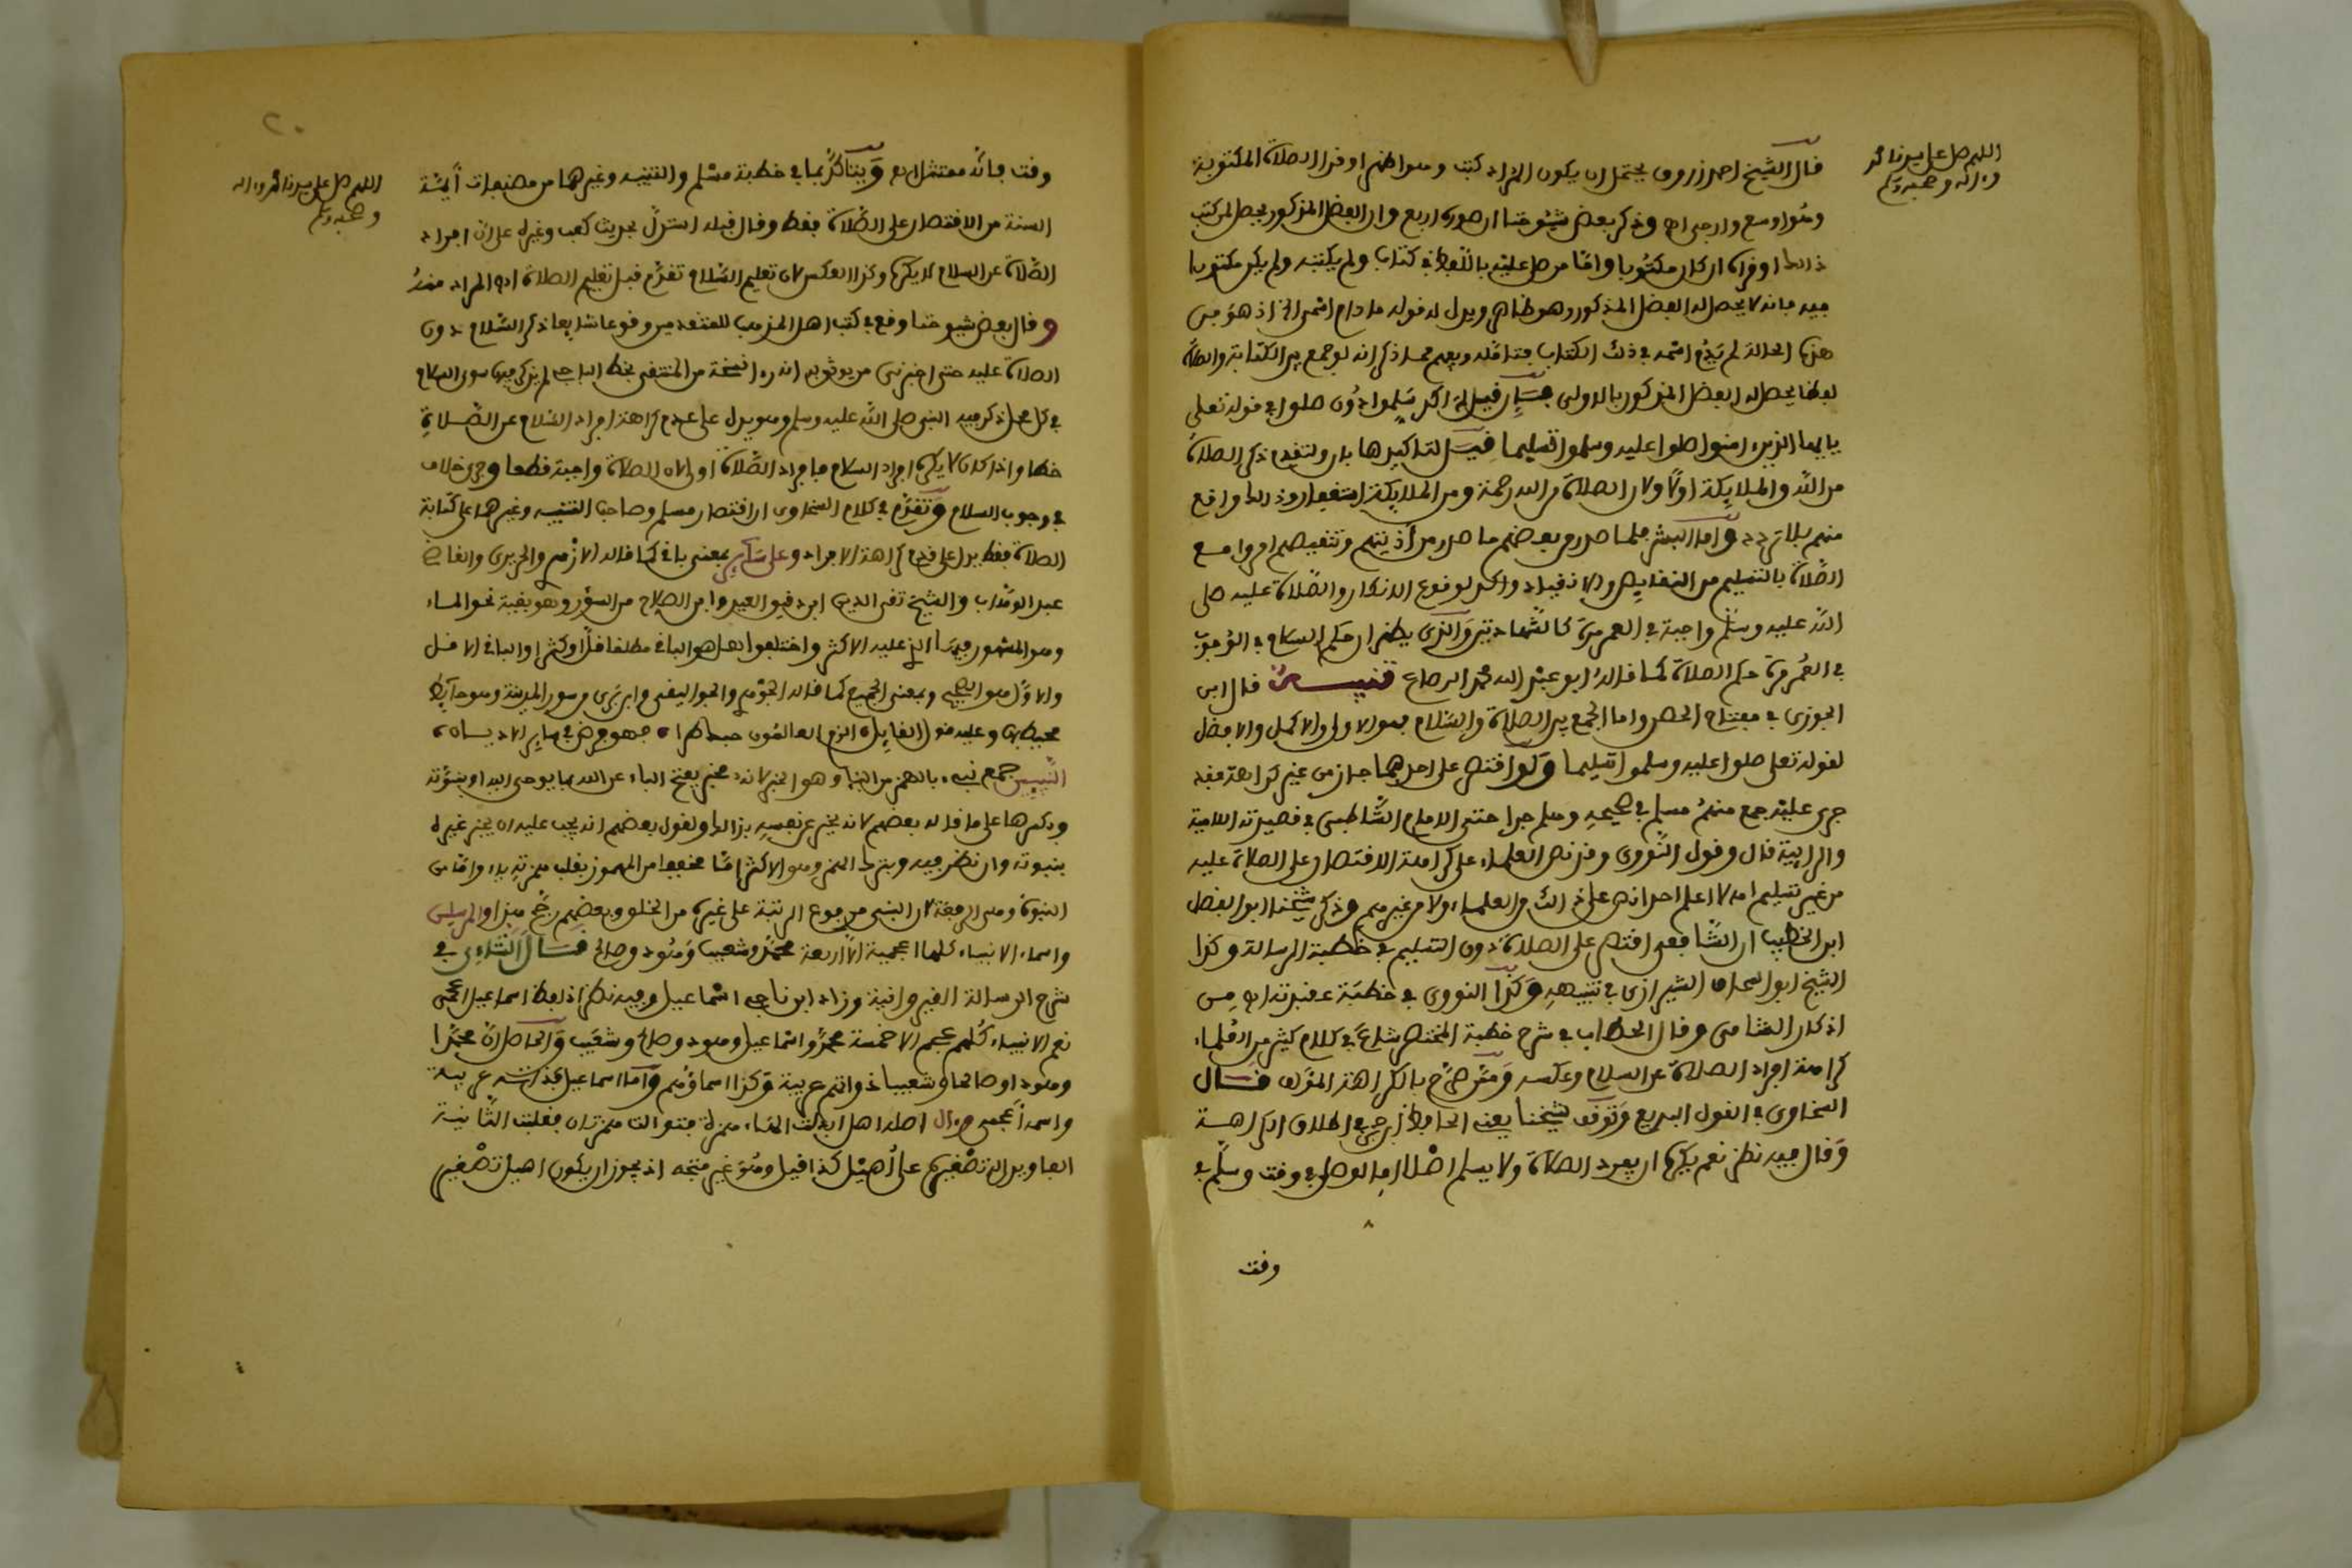 اللهم صل على سيدنا محمد
وءاله وصحبه وسلم
قال الشيخ احمد زروق يحتمل ان يكون المراد كتب وهو اظهر او قرا الصلاة المكتوبة
وهو اوسع وارجى اه وذكر بعض شيوخنا ان صوره اربع وان الفضل المذكور يحصل لمن كتب
ذلك او قراه ان كان مكتوبا واما من صلى عليه باللفظ في كتاب ولم يكتبه ولم يكن مكتوبا
فيه فانه لا يحصل له الفضل المذكور وهو ظاهر ويدل له قوله ما دام اسمي الخ اذ هو في
هذه الحالة لم يدم اسمه في ذلك الكتاب فتامله ويفهم مما ذكر انه لو جمع بين الكتابة والصلاة
لفظا يحصل له الفضل المذكور بالاولى فان قيل لم اكد سلموا دون صلوا في قوله تعلى
يايها الذين ءامنوا صلوا عليه وسلموا تسليما قيل لتاكيدها بان ولتقدم ذكر الصلاة
من الله والملايكة اولا ولان الصلاة من الله رحمة ومن الملايكة استغفار وذلك واقع
منهم بلا تردد واما البشر فلما صدر من بعضهم ما صدر من اذيتهم وتنقيصهم امروا مع
الصلاة بالتسليم من النقايص والانقياد واكد لوقوع الانكار والصلاة عليه صلى
الله عليه وسلم واجبة في العمر مرة كالشهادتين والذي يظهر ان حكم السلام في الوجوب
في العمر مرة حكم الصلاة كما قاله ابو عبد الله محمد الرصاع تنبيه قال ابن
الجوزي في مفتاح الحصن واما الجمع بين الصلاة والسلام فهو الاولى والاكمل والافضل
لقوله تعلى صلوا عليه وسلموا تسليما ولو اقتصر على احدهما جاز من غير كراهة فقد
جرى عليه جمع منهم مسلم في صحيحه وهلم جرا حتى الامام الشاطبي في قصيدته اللامية
والرايية قال وقول النووي وقد نص العلماء على كراهة الاقتصار على الصلاة عليه
من غير تسليم اه لا اعلم احدا نص على ذلك من العلماء ولا من غيرهم وذكر شيخنا ابو الفضل
ابن الخطيب ان الشافعي اقتصر على الصلاة دون التسليم في خطبة الرسالة وكذا
الشيخ ابو اسحاق الشيرازي في تنبيهه وكذا النووي في خطبة عقيدته اه من
اذكار الشامي وقال الحطاب في شرح خطبة المختصر شاع في كلام كثير من العلماء
كراهة افراد الصلاة عن السلام وعكسه وممن صرح بالكراهة المؤلف قال
السخاوي في القول البديع وتوقف شيخنا يعني الحافظ ابن حجر في اطلاق الكراهة
وقال فيه نظر نعم يكره ان يفرد الصلاة ولا يسلم اصلا اما لو صلى في وقت وسلم في
وقت
٢٠
اللهم صل على سيدنا محمد وءاله
وصحبه وسلم
وقت فانه ممتثل اه ويتاكد بما في خطبة مسلم والتنبيه وغيرهما من مصنفات ايمة
السنة من الاقتصار على الصلاة فقط وقال قبله استدل بحديث كعب وغيره على ان افراد
الصلاة عن السلام لا يكره وكذا العكس لان تعليم السلام تقدم قبل تعليم الصلاة اه المراد منه
وقال بعض شيوخنا وقع في كتب اهل المذهب للمتقدمين وقوعا شايعا ذكر السلام دون
الصلاة عليه حتى اخبرني من يوثق به انه راى نسخة من المنتقى بخط الباجي لم يذكر فيها سوى السلام
في كل محل ذكر فيه النبي صلى الله عليه وسلم وهو يدل على عدم كراهة افراد السلام عن الصلاة
خطا واذا كان لا يكره افراد السلام فافراد الصلاة اولى لان الصلاة واجبة قطعا وجرى خلاف
في وجوب السلام وتقدم في كلام السخاوي ان اقتصار مسلم وصاحب التنبيه وغيرهما على كتابة
الصلاة فقط يدل على عدم كراهة الافراد وعلى ساير بمعنى باقي كما قاله الازهري والحريري والقاضي
عبد الوهاب والشيخ تقي الدين ابن دقيق العيد وابن الصلاح من السؤر وهو بقية نحو الماء
وهو المشهور فيها الذي عليه الاكثر واختلفوا هل هو الباقي مطلقا قل او كثر او الباقي الاقل
والاول هو الصحيح وبمعنى الجميع كما قاله الجوهري والجواليقي وابن بري من سور المدينة وهو حايط
محيط بها وعليه قول القايل الزم العالمون حبك طرا فهو فرض في ساير الاديان
النبيين جمع نبيء بالهمز من النبإ وهو الخبر لانه مخبر بفتح الباء عن الله بما يوحى اليه او بنبوته
وبكسرها على ما قاله بعضهم لانه يخبر عن نفسه بذلك ولقول بعضهم انه يجب عليه ان يخبر غيره
بنبوته وان نظر فيه وبترك الهمز وهو الاكثر اما مخففا من المهموز بقلب همزته ياء واما من
النبوة وهي الرفعة لان النبي مرفوع الرتبة على غيره من الخلق وبعضهم رجح هذا والمرسلين
واسماء الانبياء كلها اعجمية الا اربعة محمد وشعيب وهود وصالح قال التتائي في
شرح الرسالة القيروانية وزاد ابن ناجي اسماعيل وفيه نظر اذ لفظ اسماعيل اعجمي
نعم الانبياء كلهم عجم الا خمسة محمد واسماعيل وهود وصالح وشعيب والحاصل ان محمدا
وهودا وصالحا وشعيبا ذواتهم عربية وكذا اسماؤهم واما اسماعيل فذاته عربية
واسمه اعجمي وءال اصله اهل ابدلت الهاء همزة فتوالت همزتان فقلبت الثانية
الفا ويدل له تصغيره على اهيل كذا قيل وهو غير متجه اذ يجوز ان يكون اهيل تصغير